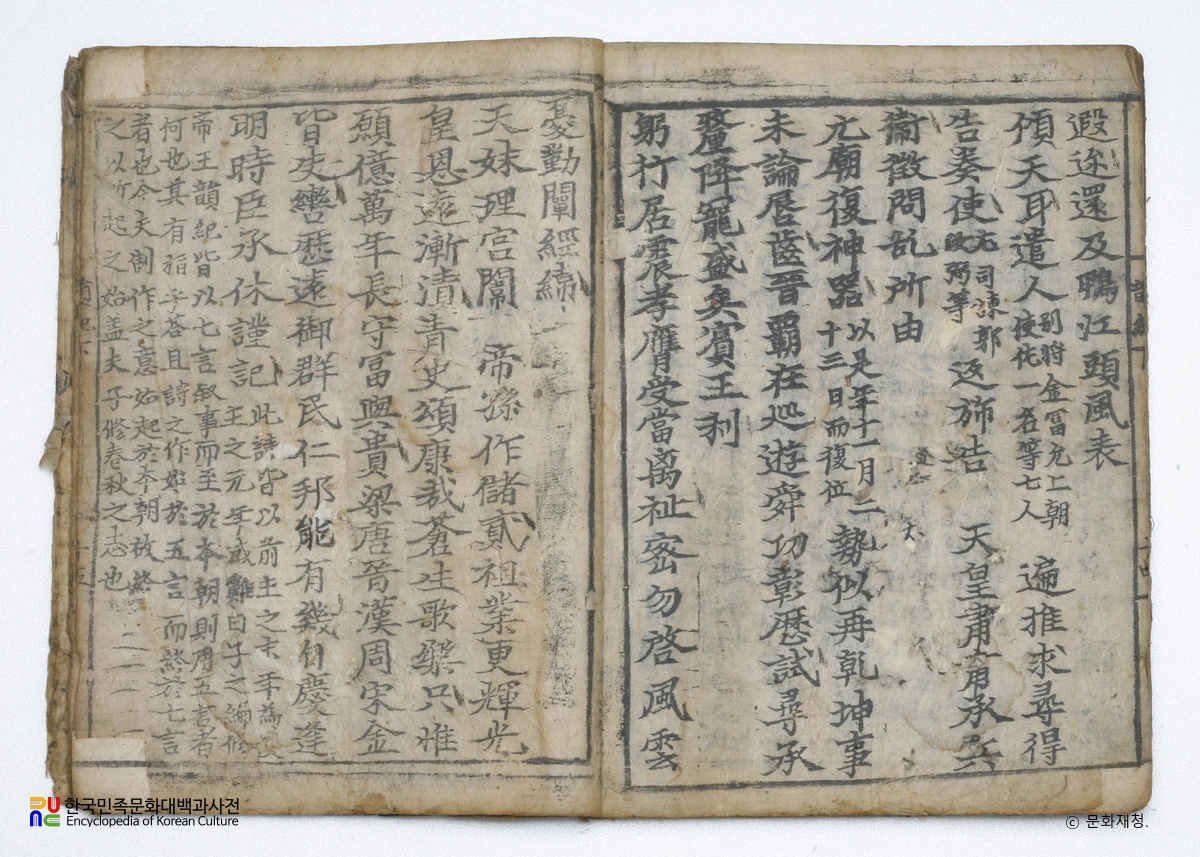 遐迩還及鴨江頭風表
傾天耳遣人別將金冨允上朝使佐一名等七人遍推求尋得
告奏使尤司諫郭 弼等 返斾告 天皇肅旨用承
徵問乱所由
元廟復神器以是年十一月二十三日而復位勢似再乾坤事
未論唇齒晋覇在巡遊舜功彰歷試尋承
釐降寵盛矣賓王利
躬行居震孝膺受當萬祉密勿啓風雲
憂勤闡經綸
天妹理宮闈 帝孫作儲貳祖業更輝光
皇恩遠漸漬青史頌康哉蒼生歌樂只惟
願億萬年長守冨與貴梁唐晉漢周宋金
皆失轡歷遠御群民仁邦能有幾自慶逢
明時臣承休謹記此詩皆以前主之末年為 王之元年或難曰子之編修
帝王韻紀皆以七言叙事而至於本朝則用五言者
何也其有指乎荅曰詩之作始於五言而終於七言
者也今夫制作之意始起於本朝故終
之以所起之始盖夫子修春秋之志也
한국민족문화대백과사전
Encyclopedia of Korean Culture
ⓒ 문화재청.